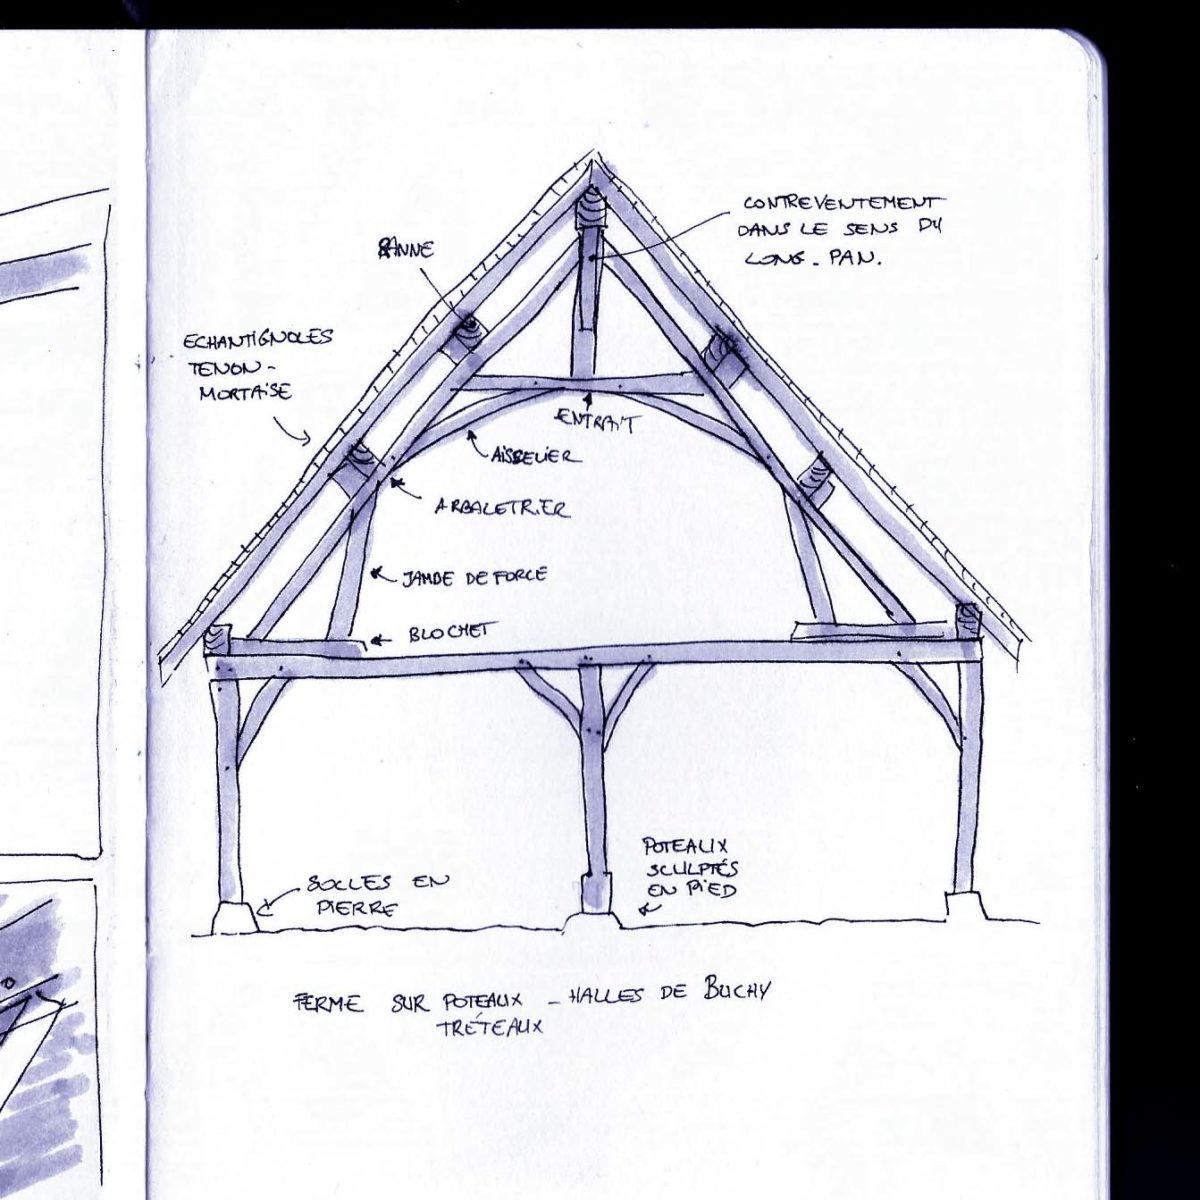 CONTREVENTEMENT
DANS LE SENS DU
LONG-PAN.
PANNE
ECHANTIGNOLES
TENON-
MORTAISE
ENTRAIT
AISSELIER
ARBALETRIER
JAMBE DE FORCE
BLOCHET
POTEAUX
SCULPTÉS
EN PIED
SOCLES EN
PIERRE
FERME SUR POTEAUX - HALLES DE BUCHY
TRÉTEAUX